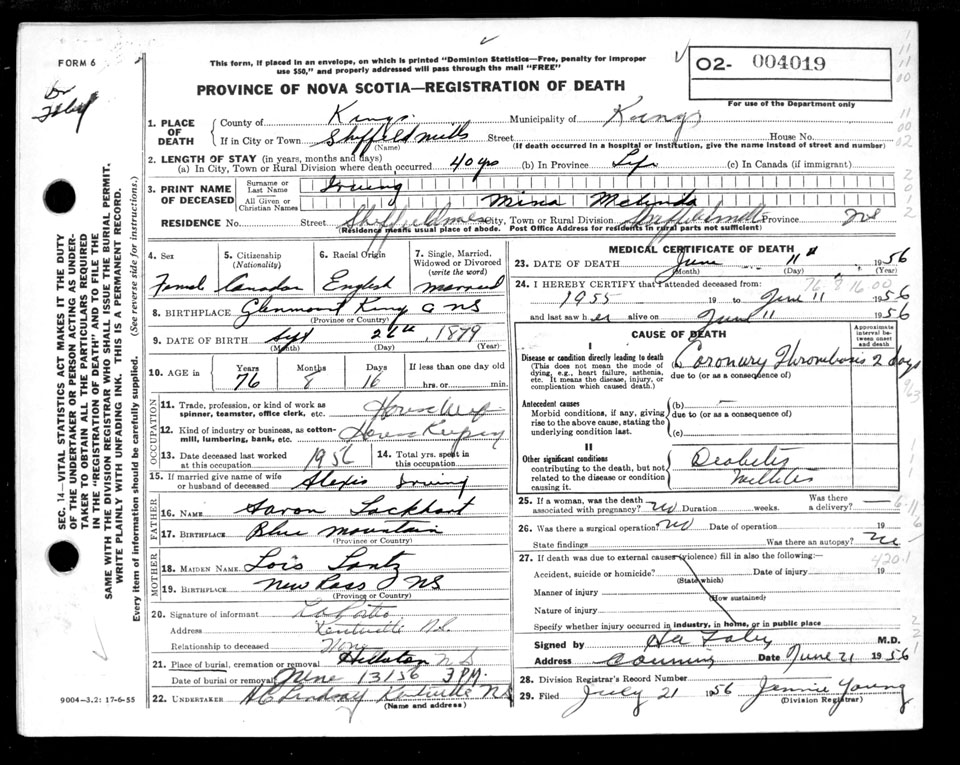 FORM 6
This form, if placed in an envelope, on which is printed "Dominion Statistics—Free, penalty for improper
use $50," and properly addressed will pass through the mail "FREE"
PROVINCE OF NOVA SCOTIA—REGISTRATION OF DEATH
02- 004019
For use of the Department only
SEC. 14—VITAL STATISTICS ACT MAKES IT THE DUTY
OF THE UNDERTAKER OR PERSON ACTING AS UNDER-
TAKER TO OBTAIN ALL THE PARTICULARS REQUIRED
IN THE "REGISTRATION OF DEATH" AND TO FILE THE
SAME WITH THE DIVISION REGISTRAR WHO SHALL ISSUE THE BURIAL PERMIT.
WRITE PLAINLY WITH UNFADING INK. THIS IS A PERMANENT RECORD.
Every item of information should be carefully supplied. (See reverse side for instructions.)
1. PLACE OF DEATH County of Kings Municipality of Kings
If in City or Town Sheffield mills Street House No.
(Name) (If death occurred in a hospital or institution, give the name instead of street and number)
2. LENGTH OF STAY (in years, months and days)
(a) In City, Town or Rural Division where death occurred 40 yrs (b) In Province Life (c) In Canada (if immigrant)
3. PRINT NAME OF DECEASED Surname or Last Name Irving
All Given or Christian Names Mina Melinda
RESIDENCE No Street Sheffield mills City, Town or Rural Division Sheffield mills Province NS
(Residence means usual place of abode. Post Office Address for residents in rural parts not sufficient)
4. Sex 5. Citizenship (Nationality) 6. Racial Origin 7. Single, Married, Widowed or Divorced (write the word)
Femal Canadan English married
8. BIRTHPLACE Glenmont King Co NS
(Province or Country)
9. DATE OF BIRTH Sept 26th, 1879
(Month) (Day) (Year)
10. AGE Years Months Days If less than one day old
76 8 16 hrs. or min.
OCCUPATION
11. Trade, profession, or kind of work as spinner, teamster, office clerk, etc. House Wife
12. Kind of industry or business, as cotton-mill, lumbering, bank, etc. House Keeping
13. Date deceased last worked at this occupation 1956 14. Total yrs. spent in this occupation
15. If married give name of wife or husband of deceased Alexis Irving
FATHER
16. NAME Aaron Lockhart
17. BIRTHPLACE Blue mountain
(Province or Country)
MOTHER
18. MAIDEN NAME Lois Lantz
19. BIRTHPLACE New Ross NS
(Province or Country)
20. Signature of informant
Address Kentville N.S.
Relationship to deceased None
21. Place of burial, cremation or removal Hillaton NS
Date of burial or removal June 13/56 3 P.M.
22. UNDERTAKER HC Lindsay Kentville NS
(Name and address)
9004—3.2: 17-6-55
MEDICAL CERTIFICATE OF DEATH
23. DATE OF DEATH June 11th 1956
(Month) (Day) (Year)
76 8 16.00
24. I HEREBY CERTIFY that I attended deceased from:
1955 19 to June 11 1956
and last saw her alive on June 11 1956
CAUSE OF DEATH Approximate interval between onset and death
I
Disease or condition directly leading to death (a) Coronary Thrombosis 2 days
(This does not mean the mode of dying, e.g., heart failure, asthenia, etc. It means the disease, injury, or complication which caused death.)
due to (or as a consequence of)
Antecedent causes (b) —
Morbid conditions, if any, giving rise to the above cause, stating the underlying condition last.
due to (or as a consequence of)
(c)
II
Other significant conditions
contributing to the death, but not related to the disease or condition causing it.
Diabetes
Mellites
25. If a woman, was the death associated with pregnancy? No Duration weeks. Was there a delivery? —
26. Was there a surgical operation? No Date of operation 19
State findings Was there an autopsy? No
420.1
27. If death was due to external causes (violence) fill in also the following:—
Accident, suicide or homicide? Date of injury 19
(State which)
Manner of injury
(How sustained)
Nature of injury
Specify whether injury occurred in industry, in home, or in public place
Signed by M.D.
Address Canning Date June 21 1956
28. Division Registrar's Record Number
29. Filed July 21 1956 Jennie Young
(Division Registrar)